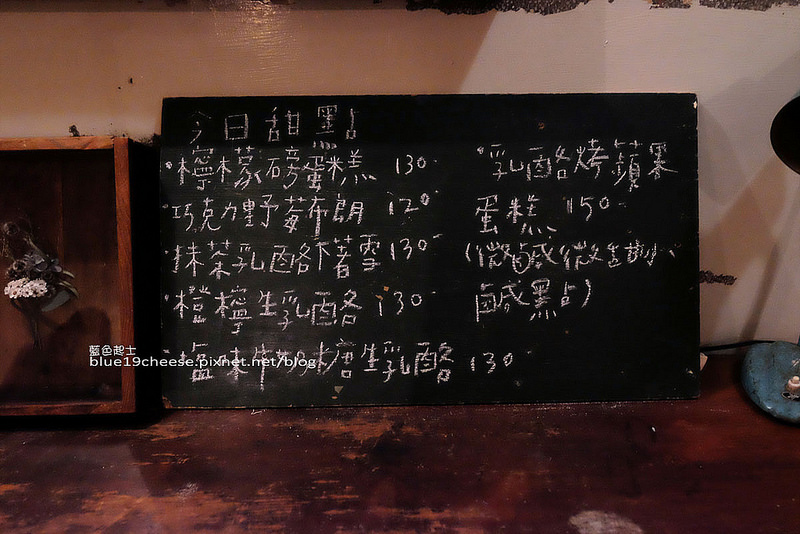 今日甜點
·檸檬磅蛋糕 130-
·巧克力野莓布朗 120-
·抹茶乳酪下著雪 130-
·橙檸生乳酪 130-
·鹽味牛奶糖生乳酪 130
·乳酪烤蘋果
蛋糕 150-
(微鹹微
鹹點)
藍色起士
blue19cheese.pixnet.net/blog